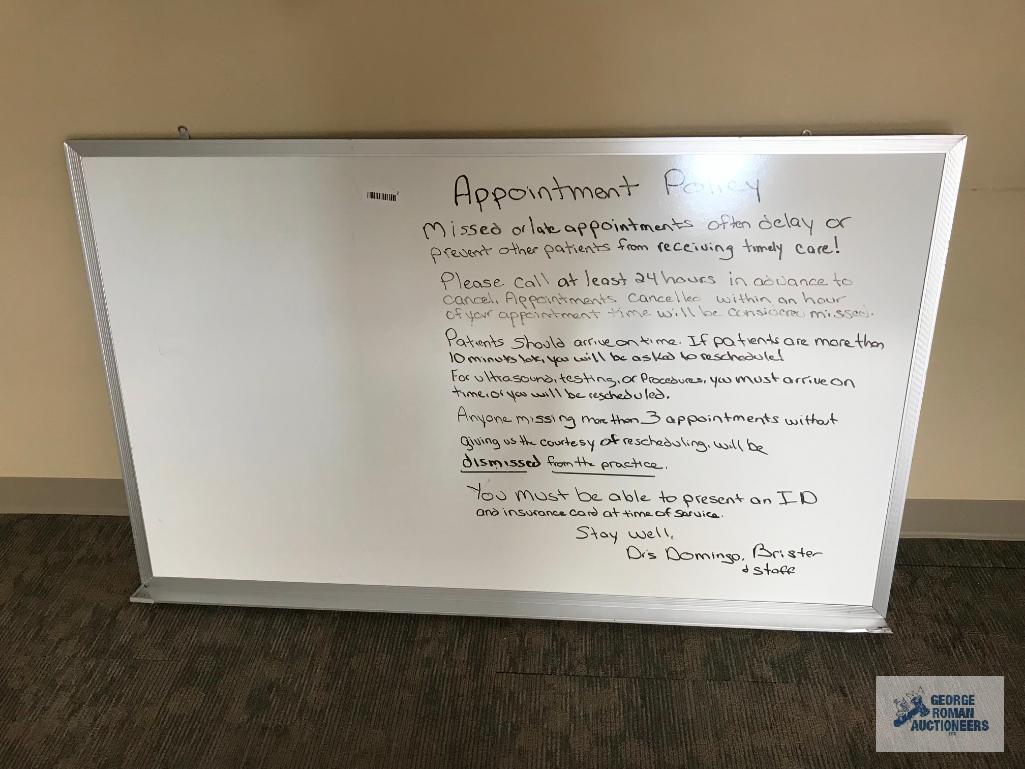 Appointment Policy
Missed or late appointments often delay or
prevent other patients from receiving timely care!
Please call at least 24 hours in advance to
cancel. Appointments cancelled within an hour
of your appointment time will be considered missed.
Patients should arrive on time. If patients are more than
10 minuts late, you will be asked to reschedule!
For ultrasound, testing, or Procedures, you must arrive on
time, or you will be rescheduled.
Anyone missing more than 3 appointments without
giving us the courtesy of rescheduling, will be
dismissed from the practice.
You must be able to present an ID
and insurance card at time of service.
Stay well,
Drs Domingo, Brister
& Staff
GEORGE
ROMAN
AUCTIONEERS